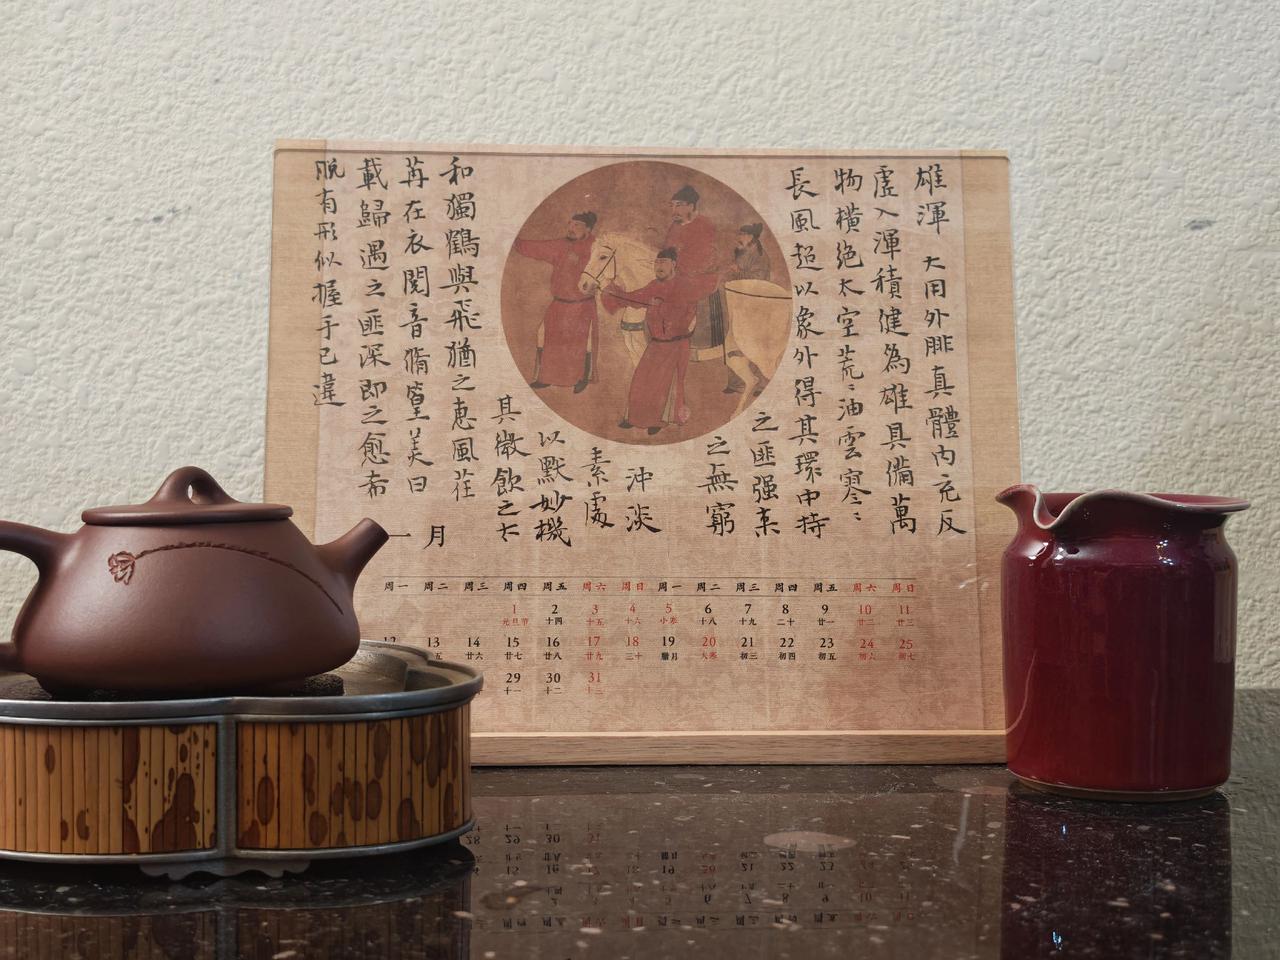 雄渾 大用外腓真體内充反
虛入渾積健為雄具備萬
物橫絕太空荒〻油雲寥〻
長風超以象外得其環中持
之匪强来
之無窮
沖淡
素處
以默妙機
其微飲之太
和獨鶴與飛猶之惠風荏
苒在衣閱音脩篁美曰
載歸遇之匪深即之愈希
脱有形似握手已違
一月
周一 周二 周三 周四 周五 周六 周日 周一 周二 周三 周四 周五 周六 周日
1 2 3 4 5 6 7 8 9 10 11
元旦节 十四 十五 十六 小寒 十八 十九 二十 廿一 廿二 廿三
12 13 14 15 16 17 18 19 20 21 22 23 24 25
五 廿六 廿七 廿八 廿九 三十 腊月 大寒 初三 初四 初五 初六 初七
29 30 31
十一 十二 十三